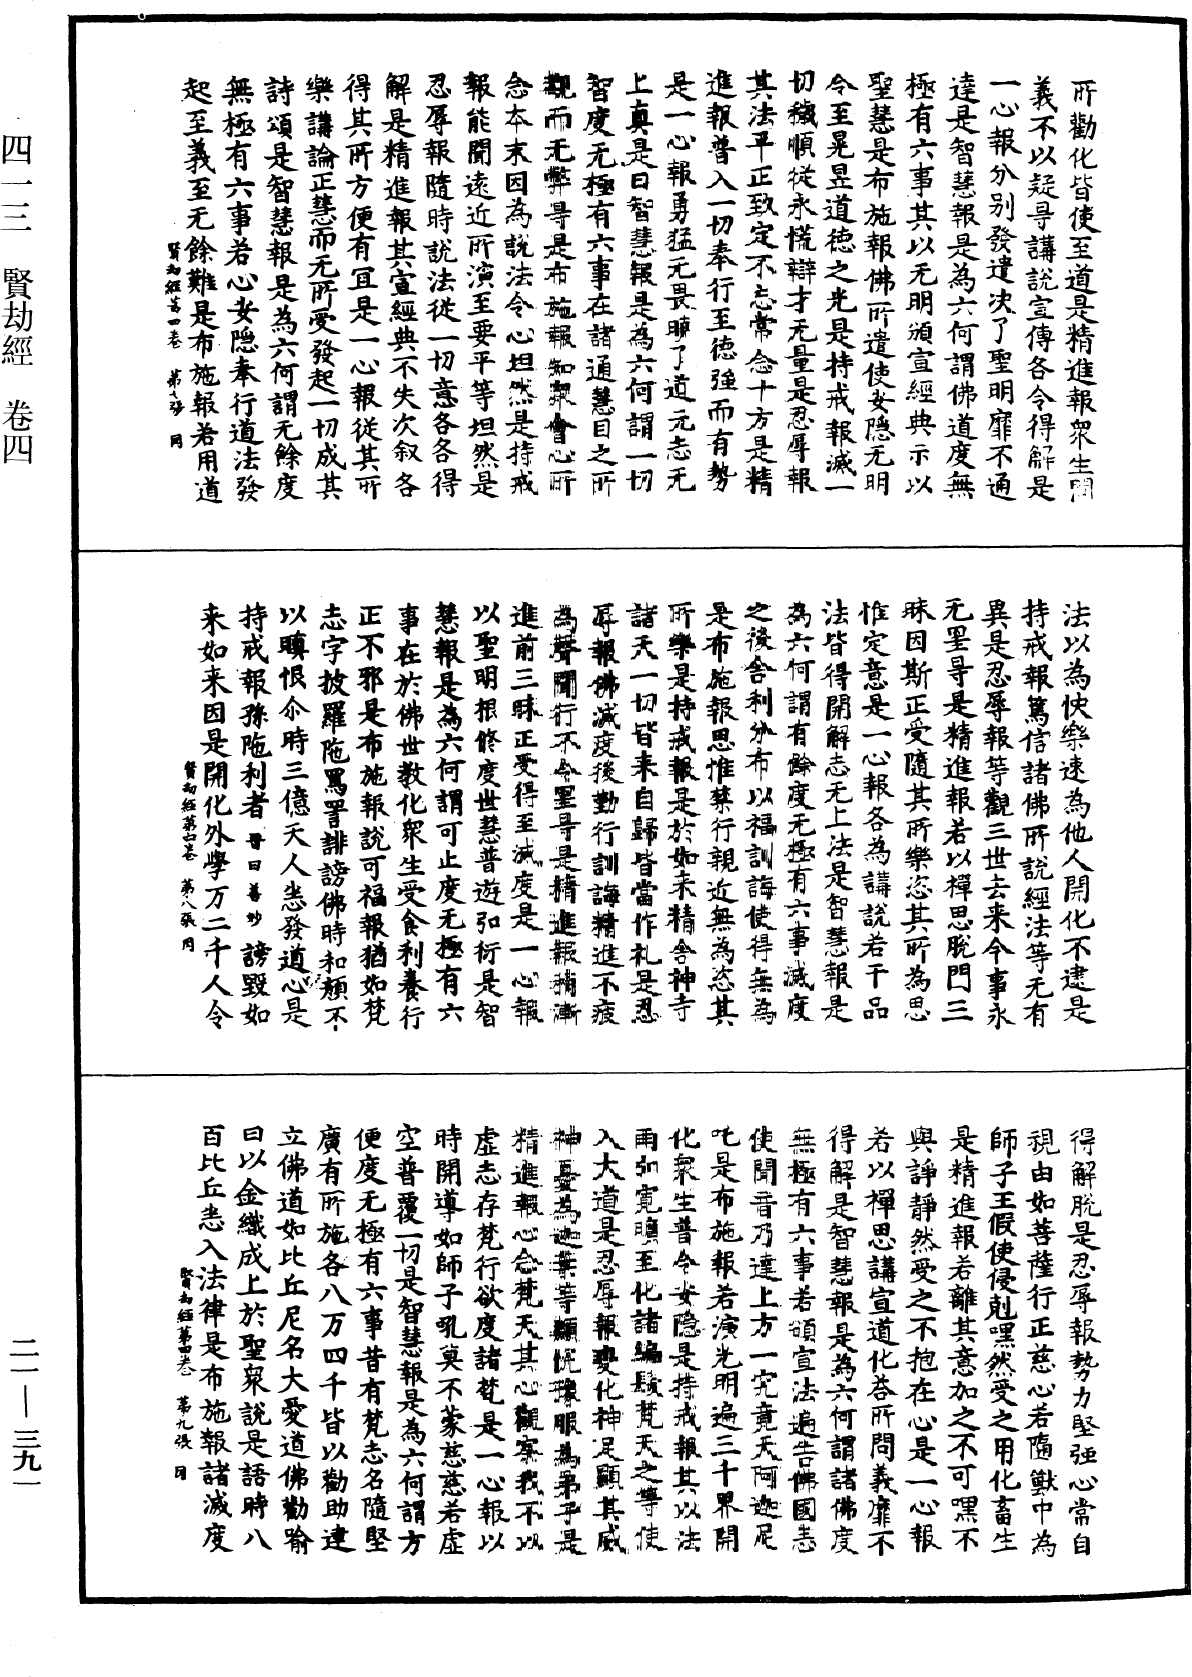 所勸化皆使至道是精進報衆生聞
義不以疑㝵講說宣傳各令得解是
一心報分別發遣決了聖明靡不通
達是智慧報是為六何謂佛道度無
極有六事其以无明頒宣經典示以
聖慧是布施報佛所遣使安隱无明
令至晃昱道德之光是持戒報滅一
切穢順從永慌辯才无量是忍辱報
其法平正致定不忘常念十方是精
進報普入一切奉行至德強而有勢
是一心報勇猛无畏曉了道元志无
上真是曰智慧報是為六何謂一切
智度无極有六事在諸通慧目之所
觀而无弊㝵是布施報知衆會心所
念本末因為說法令心坦然是持戒
報能聞遠近所演至要平等坦然是
忍辱報隨時說法從一切意各各得
解是精進報其宣經典不失次叙各
得其所方便有冝是一心報從其所
樂講論正慧而无所受發起一切成其
詩頌是智慧報是為六何謂无餘度
無極有六事若心安隱奉行道法發
起至義至无餘難是布施報若用道
賢劫經第四卷 第七張 同
法以為快樂速為他人開化不逮是
持戒報篤信諸佛所說經法等无有
異是忍辱報等觀三世去来今事永
无罣㝵是精進報若以禪思脫門三
昧因斯正受隨其所樂恣其所為思
惟定意是一心報各為講說若干品
法皆得開解志无上法是智慧報是
為六何謂有餘度无極有六事滅度
之後舍利分布以福訓誨使得無為
是布施報思惟禁行親近無為恣其
所樂是持戒報是於如来精舍神寺
諸天一切皆来自歸皆當作礼是忍
辱報佛滅度後勤行訓誨精進不疲
為聲聞行不令罣㝵是精進報稍漸
進前三昧正受得至滅度是一心報
以聖明根修度世慧普遊弘衍是智
慧報是為六何謂可止度无極有六
事在於佛世教化衆生受食利養行
正不邪是布施報說可福報猶如梵
志字披羅陁罵詈誹謗佛時和顏不
以瞋恨尒時三億天人悉發道心是
持戒報孫陁利者 晉曰善妙 謗毀如
来如来因是開化外學万二千人令
賢劫經第四卷 第八張 同
得解脫是忍辱報勢力堅強心常自
視由如菩薩行正慈心若隨獸中為
師子王假使侵剋嘿然受之用化畜生
是精進報若離其意加之不可嘿不
與諍靜然受之不抱在心是一心報
若以禪思講宣道化荅所問義靡不
得解是智慧報是為六何謂諸佛度
無極有六事若頒宣法遍告佛國悉
使聞音乃達上方一究竟天阿迦尼
吒是布施報若演光明遍三千界開
化衆生普令安隱是持戒報其以法
雨弘寛曠至化諸編髮梵天之等使
入大道是忍辱報變化神足顯其威
神憂為迦葉等顯恍豫服為弟子是
精進報心念梵天其心觀察我不以
虛志存梵行欲度諸梵是一心報以
時開導如師子吼莫不蒙慈慈若虛
空普覆一切是智慧報是為六何謂方
便度无極有六事昔有梵志名隨堅
廣有所施各八万四千皆以勸助建
立佛道如比丘尼名大愛道佛勸喻
曰以金織成上於聖衆說是語時八
百比丘悉入法律是布施報諸滅度
賢劫經第四卷 第九張 同
四一三 賢劫經 卷四
二一—三九一